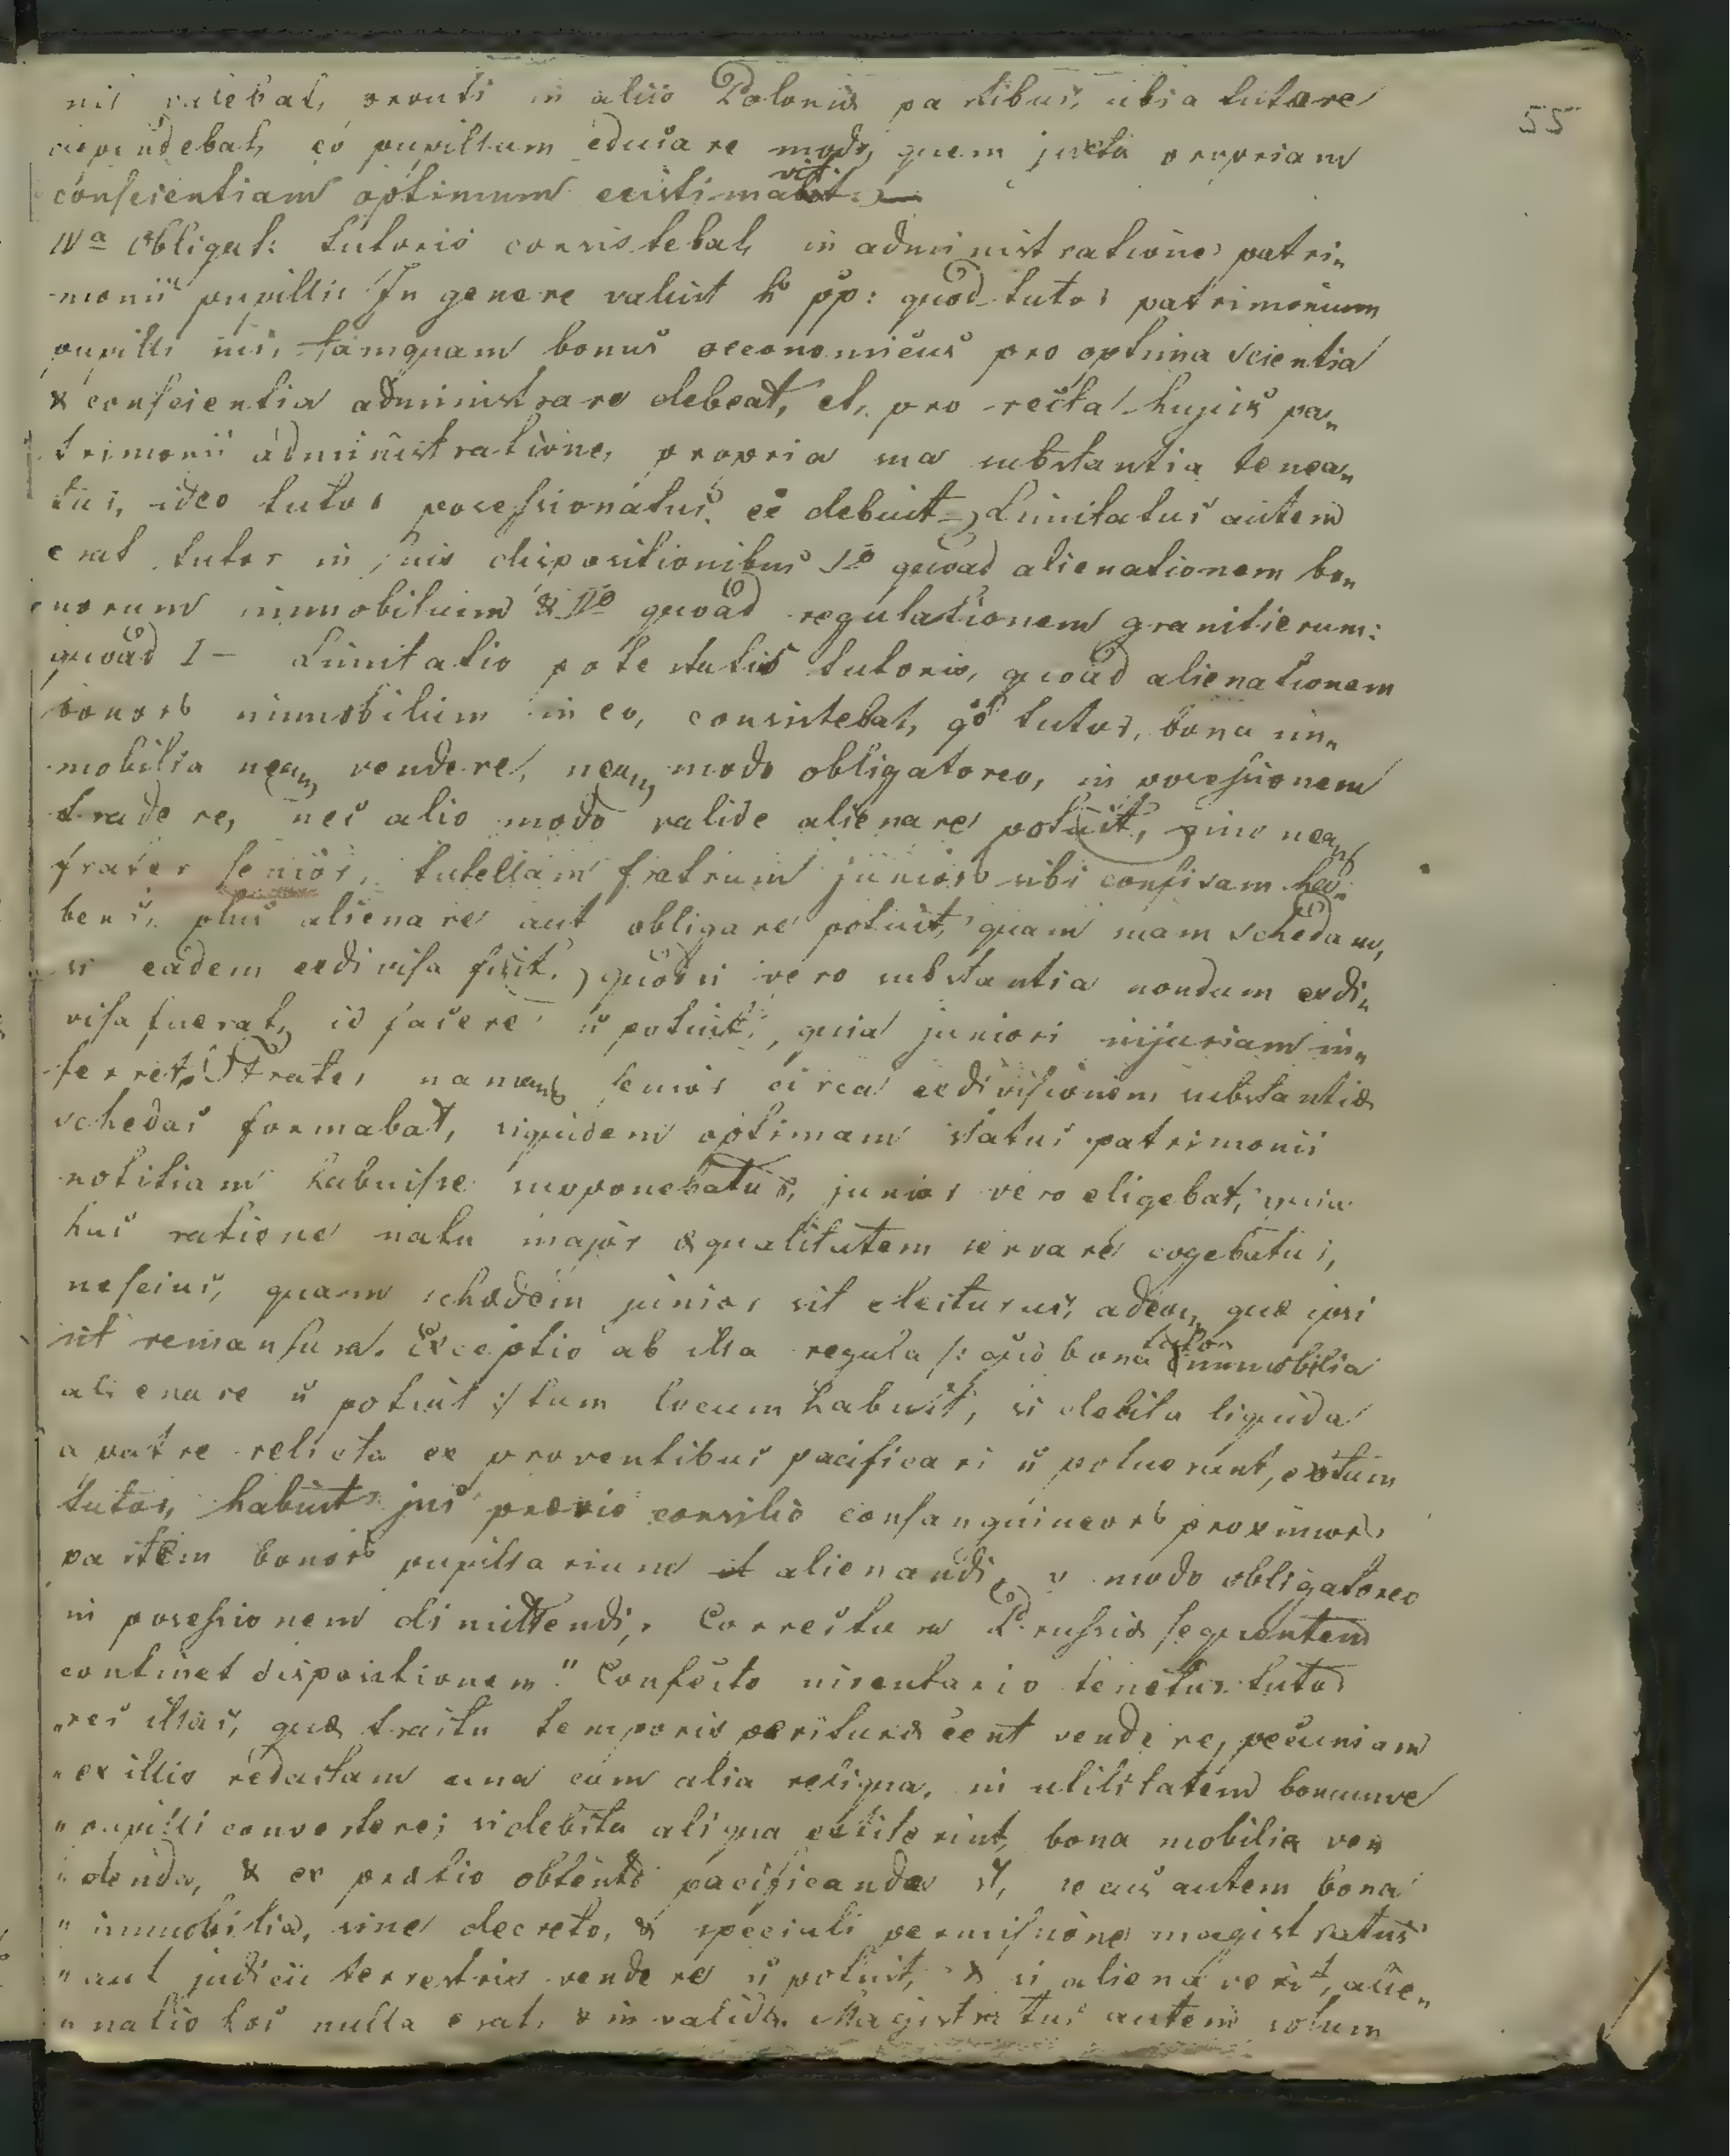 55
valebat, prouti in aliis Poloniæ partibus, ubi a tutore
dependebat, eo pupillum educare modo, quem juxta propriam
conscientiam optimum existimavit.
IVa Obligat: tutoris consistebat in administratione patri„
monii pupilli. In genere valuit h pp: quod tutor patrimonium
pupilli sui, tamquam bonus oeconomicus pro optima scientia
& conscientia administrare debeat, et, pro recta hujus pa„
trimonii administratione, propria sua substantia tenea„
tur, ideo tutor possessionatus ee debuit. Limitatus autem
erat tutor in suis dispositionibus Io quoad alienationem bo„
norum immobilium & IIo quoad regulationem granitierum:
quoad I – Limitatio potestatis tutoris, quoad alienationem
bonorb immobilium in eo, consistebat, qd tutor, bona im„
mobilia neq, vendere, neq, modo obligatoreo, in possessionem
tradere, nec alio modo valide alienare potuit, imo neq,
frater senior, tutellam fratrum juniorb sibi confisam ha„
bens, plus alienare aut obligare potuit, quam suam schedam,
si eadem exdivisa fuit, quodsi vero substantia nondum exdi„
visa fuerat, id facere n potuit, quia juniori injuriam in„
ferret. Frater namq, senior circa exdivisionem substantiæ
schedas formabat, siquidem optimam status patrimonii
notitiam habuisse supponebatur, junior vero eligebat, quia
hac ratione natu major æqualitatem servare cogebatur,
nescius, quam schedam junior sit electurus, adeoq, quæ ipsi
sit remansura. Exceptio ab illa regula /: qd bona tutor immobilia
alienare n potuit :/ tum locum habuit, si debita liquida
a patre relicta ex proventibus pacificari n potuerunt, extum
tutor, habuit jus prævio consilio consanguineorb proximor
partem bonorb pupillarium et alienandi, v modo obligatoreo
in possessionem dimittendi. Correctura Prussiæ sequentem
continet dispositionem." Confecto inventario tenetur tutor
„res illas, quæ tractu temporis perituræ eent vendere, pecuniam
„ex illis redactam una cum alia reliqua, in utilitatem bonumve
„pupilli convertere; si debita aliqua extiterint, bona mobilia ven
„denda, & ex pretio obtento pacificanda st, secus autem bona
„immobilia, sine decreto, & speciali permissione magistratus
„aut judicii terrestris vendere n potuit, & si alienaverit, alie„
„natio hæc nulla erat, & invalida. Magistratus autem solum